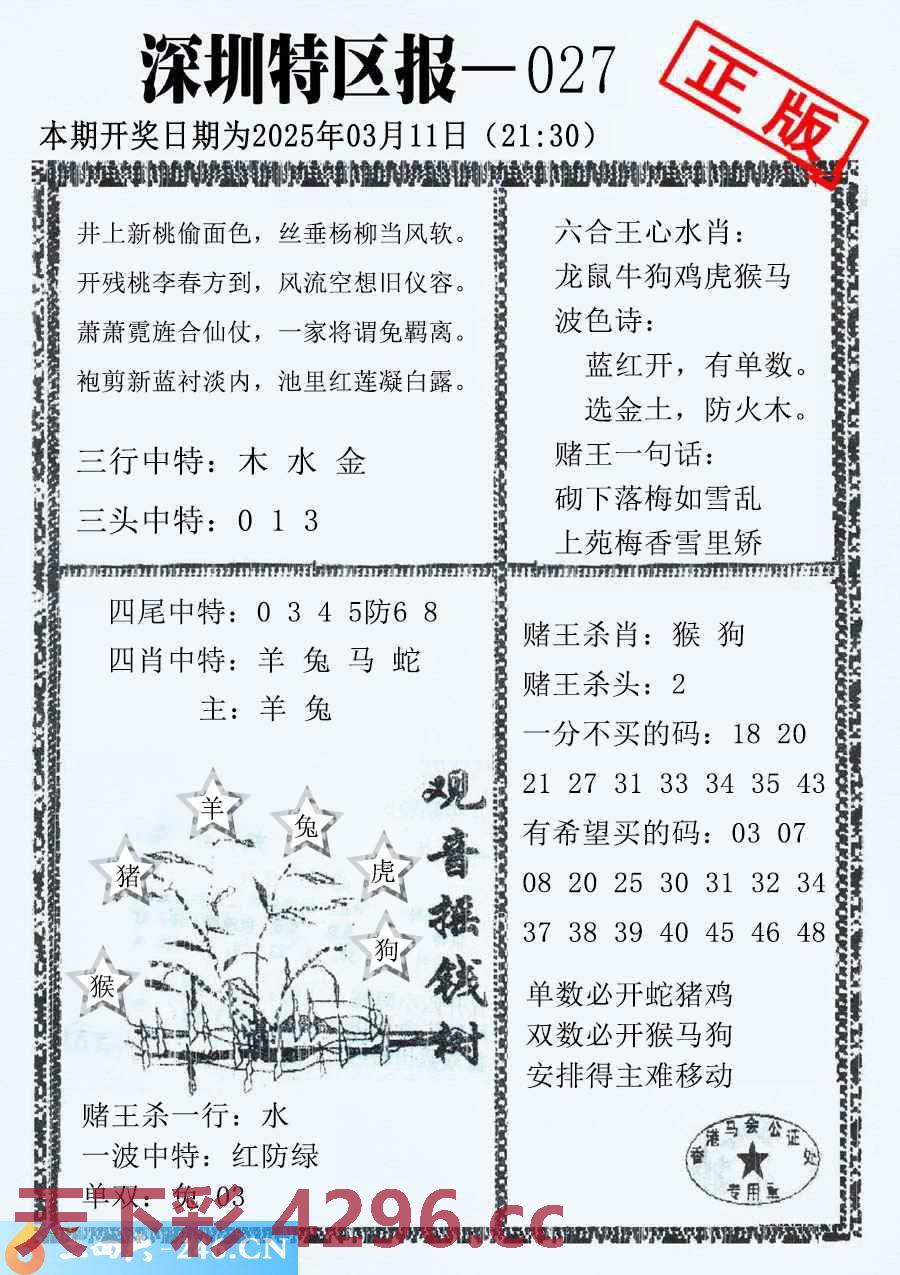 深圳特区报—027
正版
本期开奖日期为2025年03月11日（21:30）
井上新桃偷面色，丝垂杨柳当风软。
开残桃李春方到，风流空想旧仪容。
萧萧霓旌合仙仗，一家将谓免羁离。
袍剪新蓝衬淡内，池里红莲凝白露。
三行中特：木 水 金
三头中特：0 1 3
六合王心水肖：
龙鼠牛狗鸡虎猴马
波色诗：
蓝红开，有单数。
选金土，防火木。
赌王一句话：
砌下落梅如雪乱
上苑梅香雪里矫
四尾中特：0 3 4 5防6 8
四肖中特：羊 兔 马 蛇
主：羊 兔
羊
兔
猪
虎
狗
猴
观音摇钱树
赌王杀一行：水
一波中特：红防绿
单双：兔 03
赌王杀肖：猴 狗
赌王杀头：2
一分不买的码：18 20
21 27 31 33 34 35 43
有希望买的码：03 07
08 20 25 30 31 32 34
37 38 39 40 45 46 48
单数必开蛇猪鸡
双数必开猴马狗
安排得主难移动
香港马会公证处
专用章
天下彩 4296.cc
246.CN